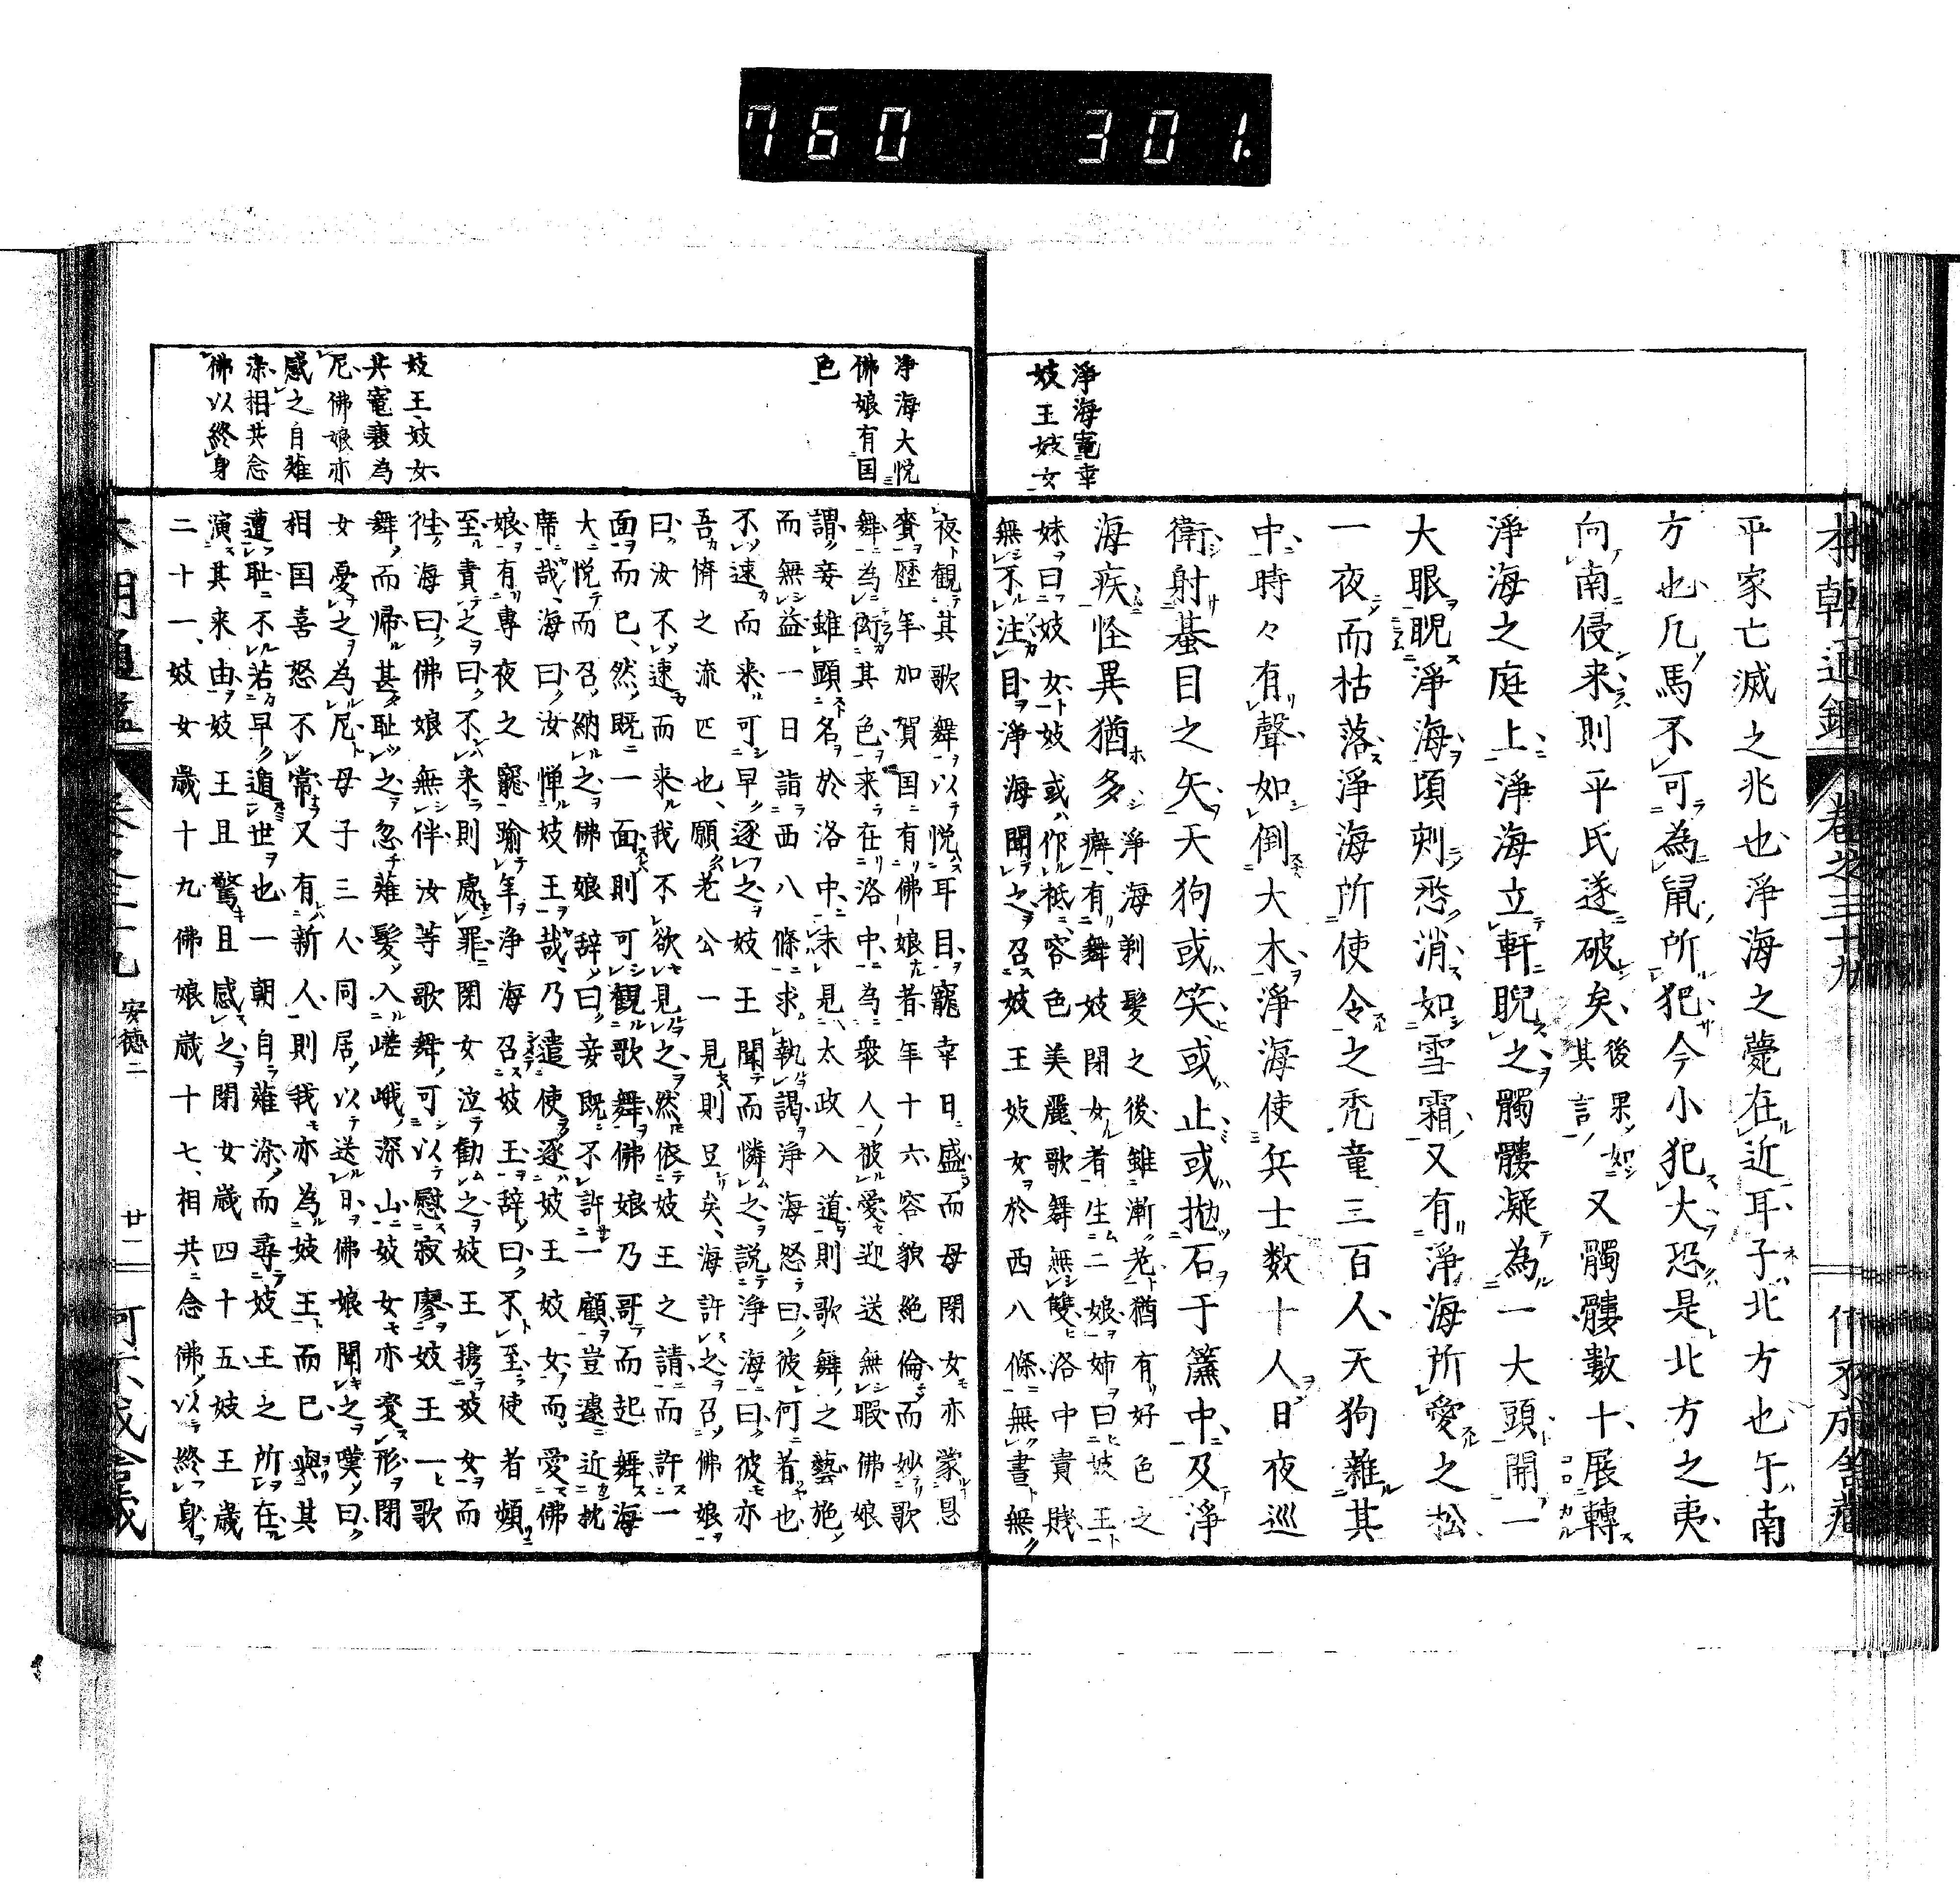 760 301.
本朝通鑑 卷之三十九
淨海寵幸
妓王妓女
平家亡滅之兆也淨海之薨在近耳子北方也午南
方也凡馬不可為鼠所犯今小犯大恐是北方之夷
向南侵来則平氏遂破矣後果如其言又髑髏數十展轉
淨海之庭上淨海立軒睨之髑髏凝為一大頭開一
大眼睨淨海頃刻悉消如雪霜又有淨海所愛之松
一夜而枯落淨海所使令之禿童三百人天狗雜其
中時々有聲如倒大木淨海使兵士数十人日夜巡
衛射蟇目之矢天狗或笑或止或拋石于簾中及淨
海疾怪異猶多
淨海剃髮之後雖漸老猶有好色之
癖有舞妓閉女者生二娘姉曰妓王
妹曰妓女妓或作祇容色美麗歌舞無雙洛中貴賤
無不注目淨海聞之召妓王妓女於西八條無晝無
淨海大悦
佛娘有国
色
妓王妓女
共寵衰為
尼佛娘亦
感之自薙
染相共念
佛以終身
夜觀其歌舞以悦耳目寵幸日盛而母閉女亦蒙恩
賚歷年加賀国有佛娘者年十六容貌絶倫而妙歌
舞為衒其色来在洛中為衆人彼愛迎送無暇佛娘
謂妾雖顯名於洛中未見太政入道則歌舞之藝施
而無益一日詣西八條求執謁淨海怒曰彼何者也
不速而来可早逐之妓王聞而憐之説淨海曰彼亦
吾儕之流匹也願老公一見則足矣海許之召佛娘
曰汝不速而来我不欲見之然依妓王之請而許一
面而已然既一面則可觀歌舞佛娘乃哥而起舞海
大悦而召納之佛娘辞曰妾既不許一顧豈遽近枕
席哉海曰汝憚妓王哉乃遣使逐妓王妓女而愛佛
娘有專夜之寵踰年淨海召妓王辞曰不至使者頻
至責之曰不来則處罪閉女泣勸之妓王携妓女而
往海曰佛娘無伴汝等歌舞可以慰寂寥妓王一歌
舞而帰甚耻之忽薙髮入嵯峨深山妓女亦變形閉
女憂之為尼母子三人同居以送日佛娘聞之嘆曰
相国喜怒不常又有新人則我亦為妓王而已與其
遭耻不若早遁世也一朝自薙染而尋妓王之所在
演其来由妓王且驚且感之閉女歳四十五妓王歳
二十一妓女歳十九佛娘歳十七相共念佛以終身
安徳二 廿一